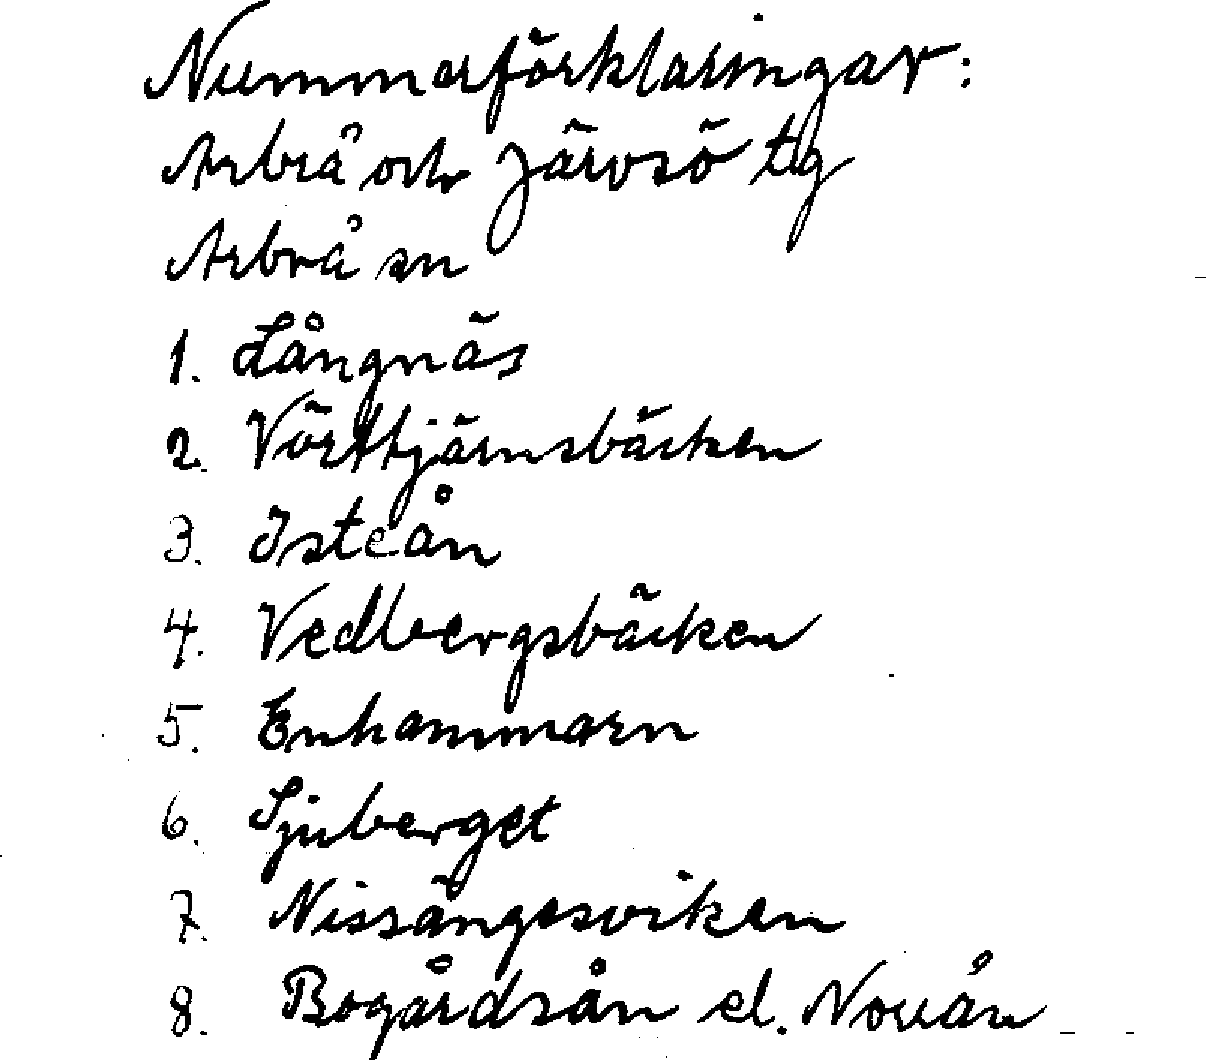 Nummerförklaringar:
Arbrå och Järvsö tg
Arbrå sn
1. Långnäs
2. Vörttjärnsbäcken
3. Isteån
4. Vedbergsbäcken
5. Enhammarn
6. Sjuberget
7. Nissängesviken
8. Bogårdsån el. Novån